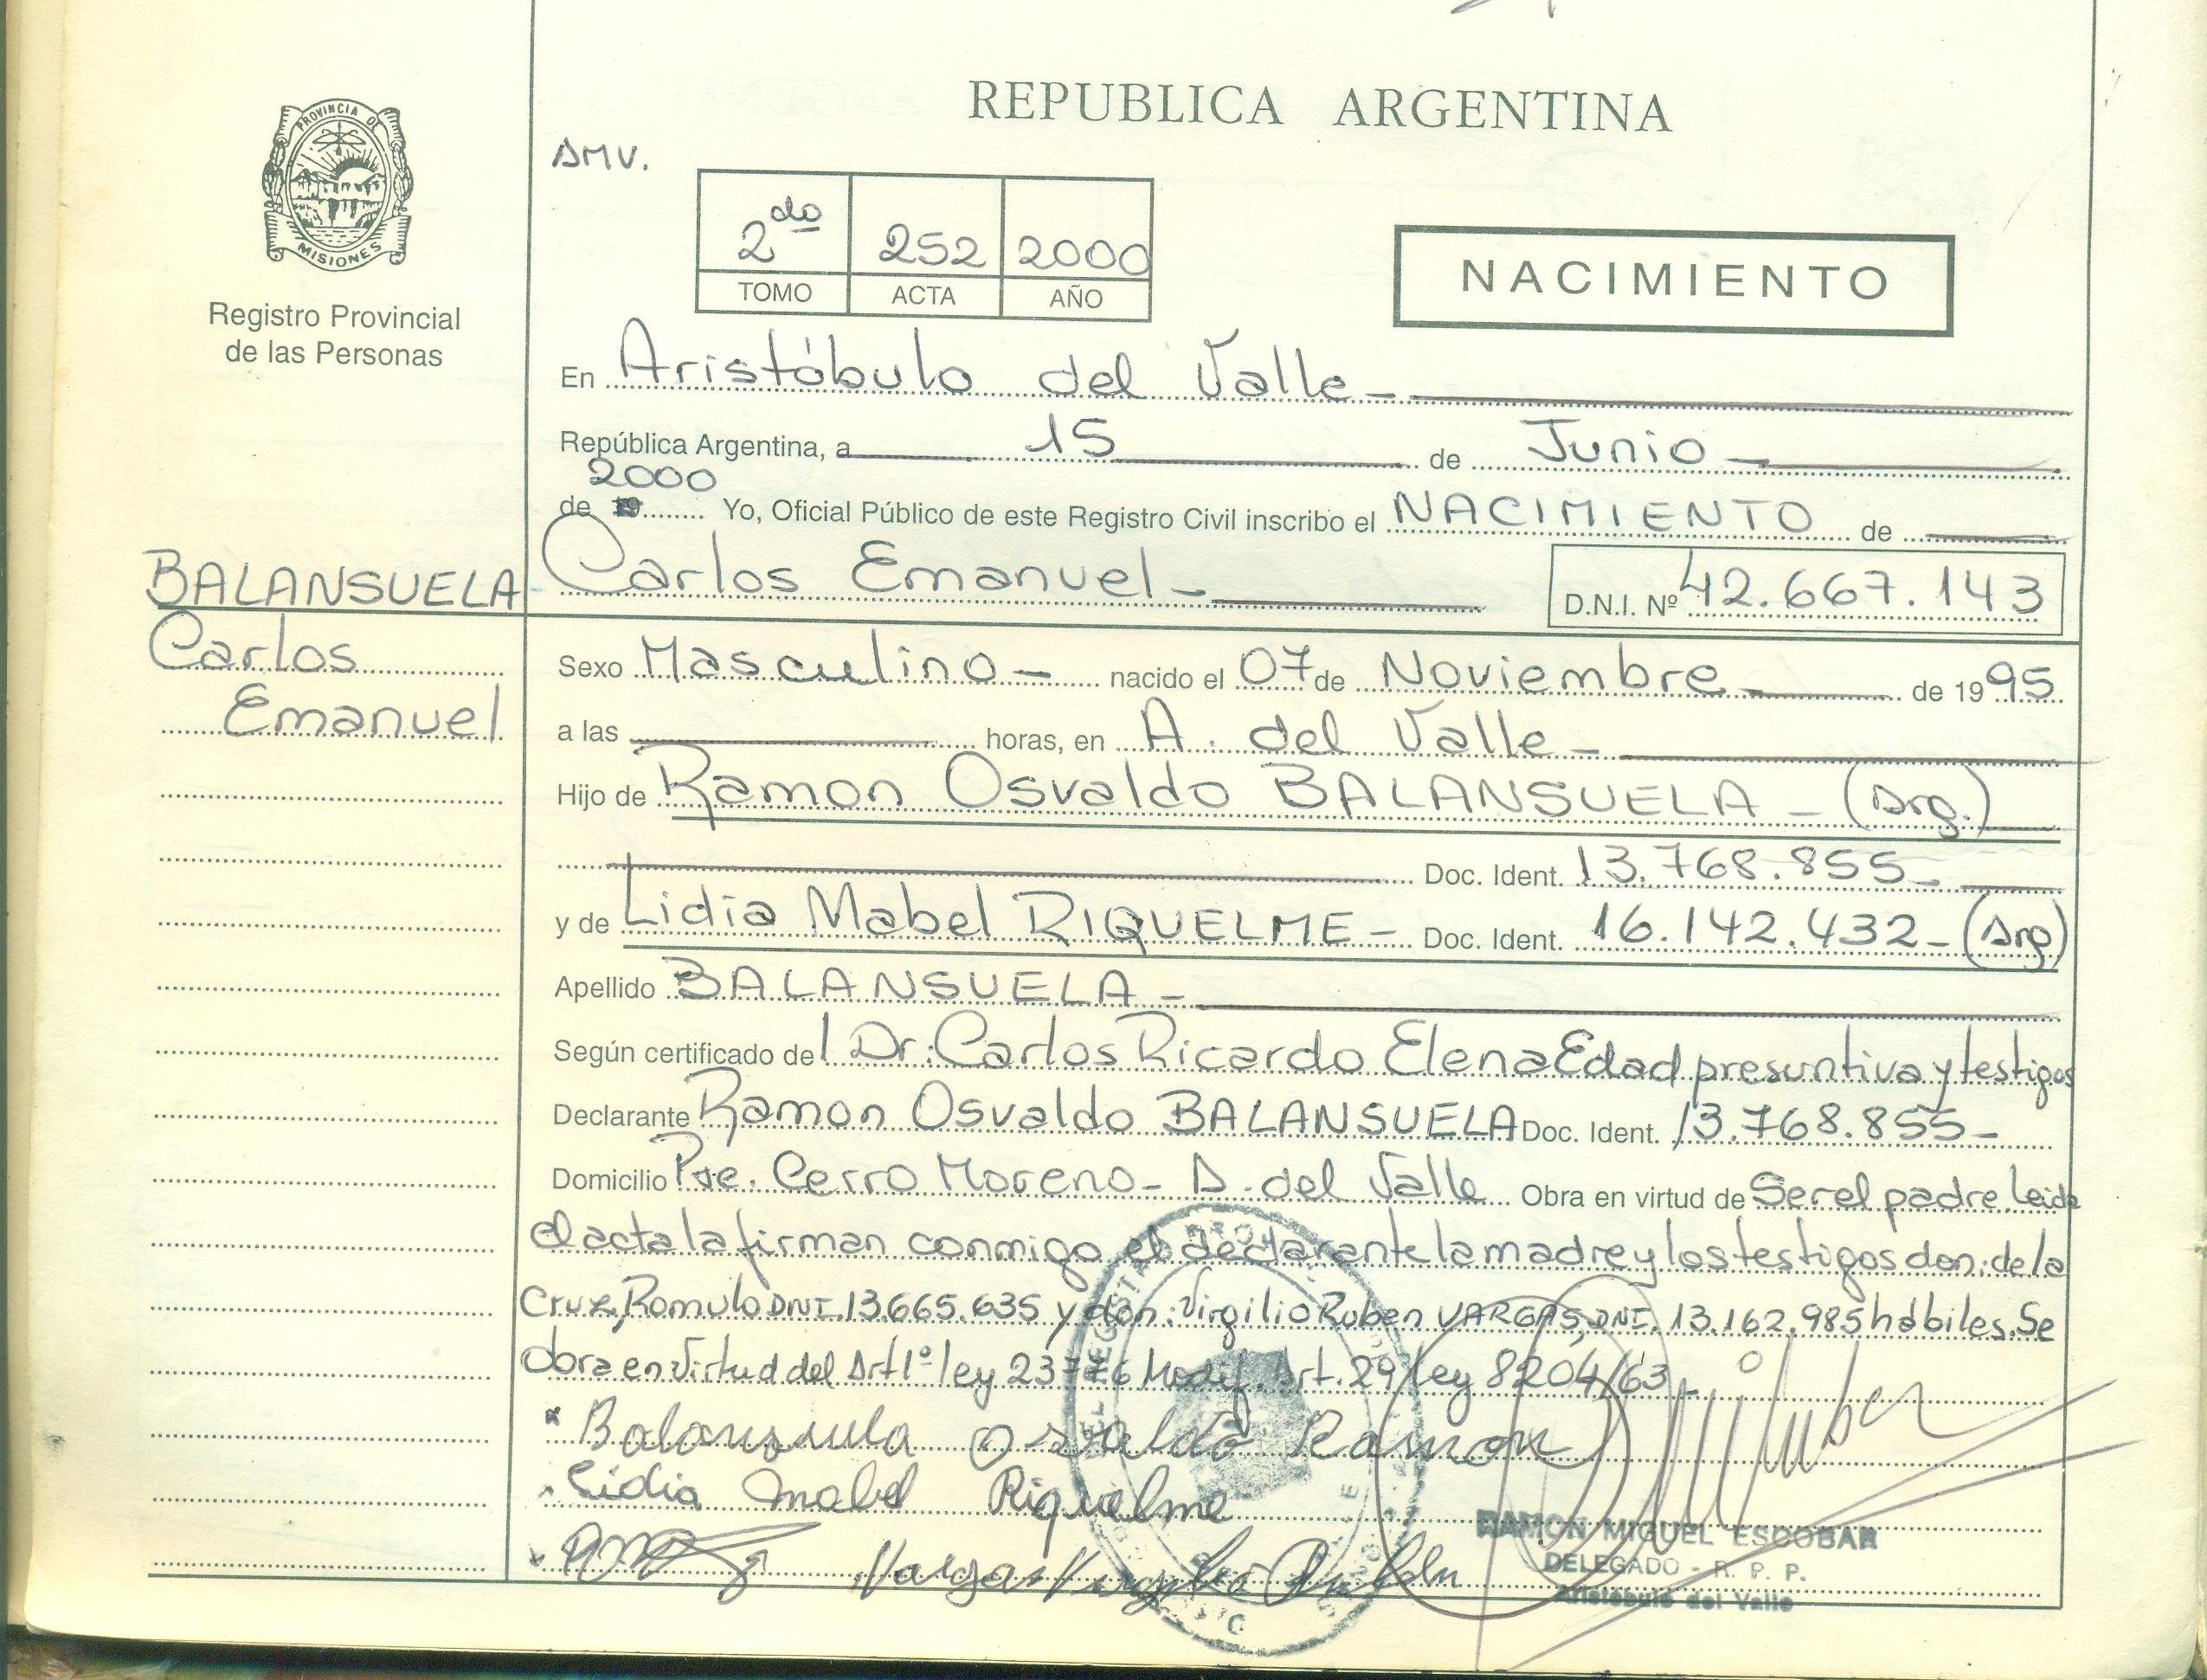 REPUBLICA ARGENTINA
PROVINCIA DE
MISIONES
Registro Provincial
de las Personas
AMV.
2do 252 2000
TOMO ACTA AÑO
NACIMIENTO
En Aristóbulo del Valle
República Argentina, a 15 de Junio
2000
de 19 Yo, Oficial Público de este Registro Civil inscribo el NACIMIENTO de
BALANSUELA
Carlos
Emanuel
Carlos Emanuel D.N.I. Nº 42.667.143
Sexo Masculino nacido el 07 de Noviembre de 1995
a las horas, en A. del Valle
Hijo de Ramon Osvaldo BALANSUELA - (Arg.)
Doc. Ident. 13.768.855
y de Lidia Mabel RIQUELME - Doc. Ident. 16.142.432 - (Arg)
Apellido BALANSUELA
Según certificado del Dr: Carlos Ricardo Elena Edad presuntiva y testigos
Declarante Ramon Osvaldo BALANSUELA Doc. Ident. 13.768.855
Domicilio Pje. Cerro Moreno - A. del Valle Obra en virtud de Ser el padre. Leida
el acta la firman conmigo el declarante la madre y los testigos don: de la
Cruz, Romulo DNI. 13.665.635 y don: Virgilio Ruben VARGAS, DNI. 13.162.985 hábiles. Se
obra en virtud del Art 1º ley 23776 Modif. Art. 29 ley 8204/63
Balansuela Osvaldo Ramon
Lidia Mabel Riquelme
Vargas Virgilio Ruben
RAMON MIGUEL ESCOBAR
DELEGADO - R. P. P.
Aristobulo del Valle